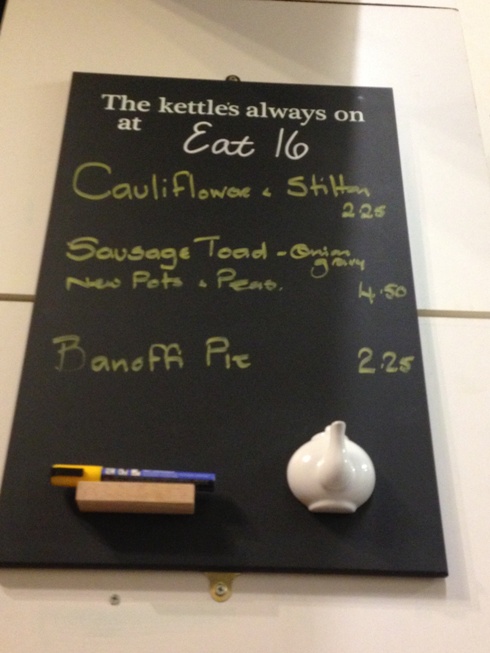 The kettle's always on
at Eat 16
Cauliflower & Stilton
2.25
Sausage Toad - Onion
gravy
New Pots & Peas.
4.50
Banoffi Pie 2.25